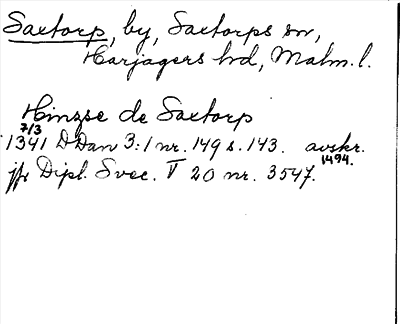 Saxtorp, by, Saxtorps sn,
Harjagers hd, Malm. l.
Hinzse de Saxtorp
7/3
1341 DDan 3:1 nr. 149 s. 143. avskr.
1494.
jfr Dipl. Svec. V 20 nr. 3547.